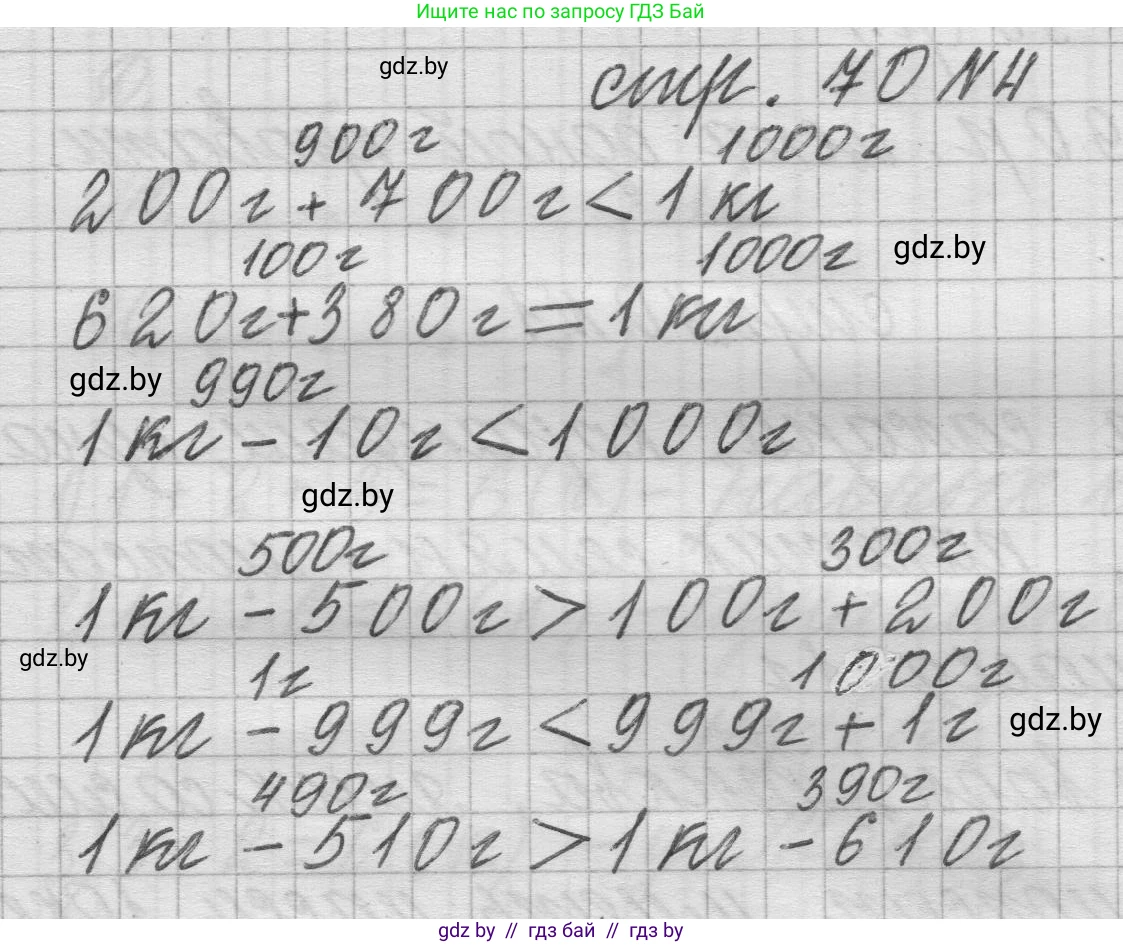 Ищите нас по запросу ГДЗ Бай
gdz.by стр. 70 №4
900г 1000г
200г + 700г < 1 кг
100г 1000г gdz.by
620г+380г = 1 кг
gdz.by 990г
1кг - 10г < 1000г
gdz.by
500г 300г
1кг - 500г > 100г + 200г
gdz.by 1г 1000г
1кг - 999г < 999г + 1г gdz.by
490г 390г
1кг - 510г > 1кг - 610г
gdz by // гдз бай // гдз by